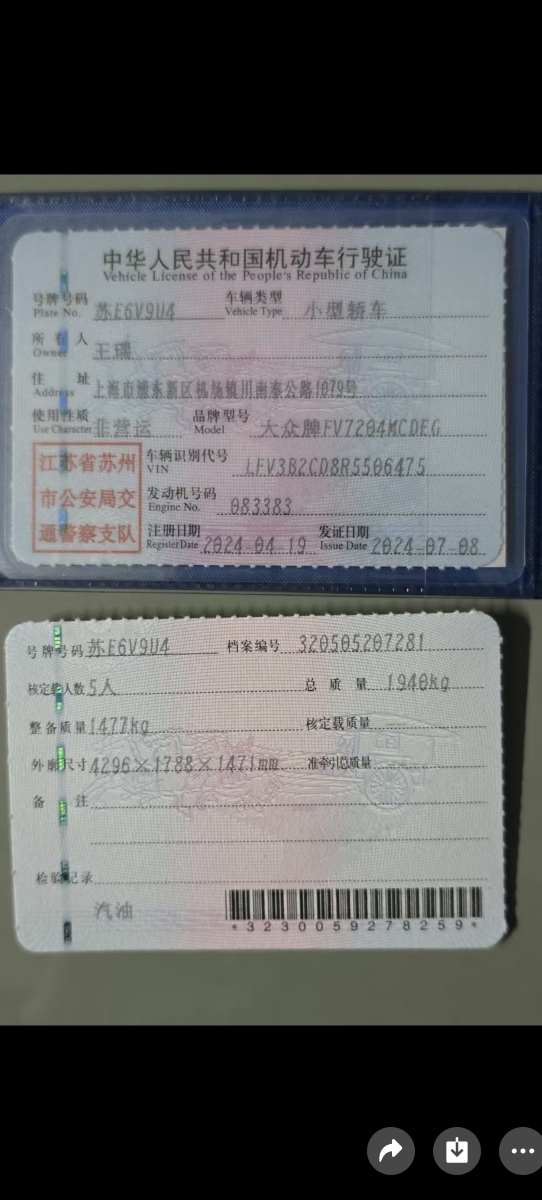 中华人民共和国机动车行驶证
Vehicle License of the People's Republic of China
号牌号码 苏E6V9U4 车辆类型 小型轿车
Plate No. Vehicle Type
所有人 王瑞
Owner
住址 上海市浦东新区机场镇川南奉公路1079号
Address
使用性质 非营运 品牌型号 大众牌FV7204MCDEG
Use Character Model
江苏省苏州
市公安局交
通警察支队
车辆识别代号 LFV3B2CD8R5506475
VIN
发动机号码 083383
Engine No.
注册日期 2024-04-19 发证日期 2024-07-08
Register Date Issue Date
号牌号码 苏E6V9U4 档案编号 320505207281
核定载人数 5人 总质量 1940kg
整备质量 1477kg 核定载质量
外廓尺寸 4296×1788×1471mm 准牵引总质量
备注
检验记录
汽油
*3230059278259*